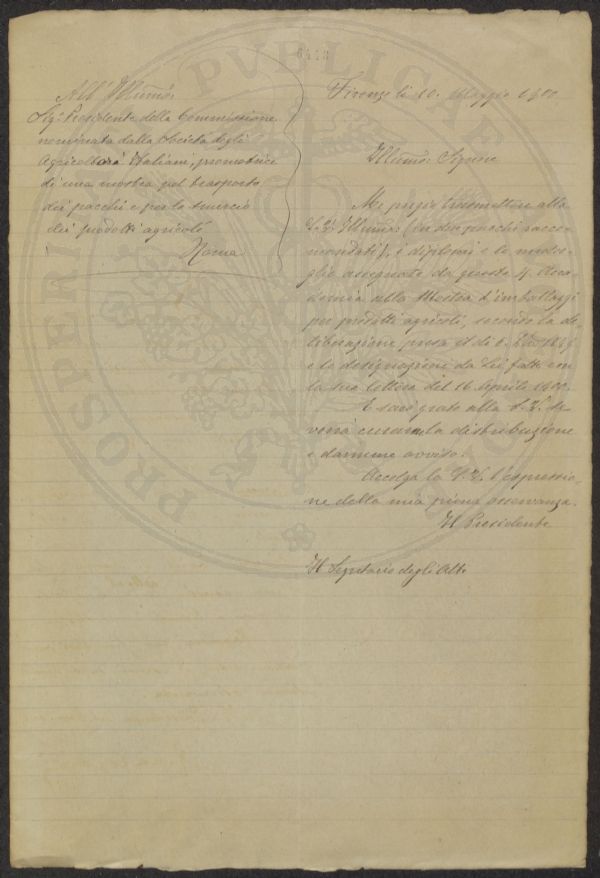 All' Illmo:
Sig: Presidente della Commissione
nominata dalla Società degli
Agricoltori Italiani, promotrice
di una mostra pel trasporto
dei pacchi e per lo smercio
dei prodotti agricoli
Roma
Firenze li 10. Maggio 1900.
Illmo: Signore
Mi pregio trasmettere alla
S. V. Illma: (in due pacchi racco-
mandati), i diplomi e le meda-
glie assegnate da questa R. Acca-
demia alla Mostra d'imballaggi
per prodotti agricoli, secondo la de-
liberazione presa il dì
e le designazioni da Lei fatte con
la sua lettera del 16 Aprile 1900.
E sarò grato alla S. V. se
vorrà curarne la distribuzione
e darmene avviso.
Accolga la S. V. l'espressio-
ne della mia piena osservanza.
Il Presidente
Il Segretario degli Atti
PROSPERITATI PVBLICAE